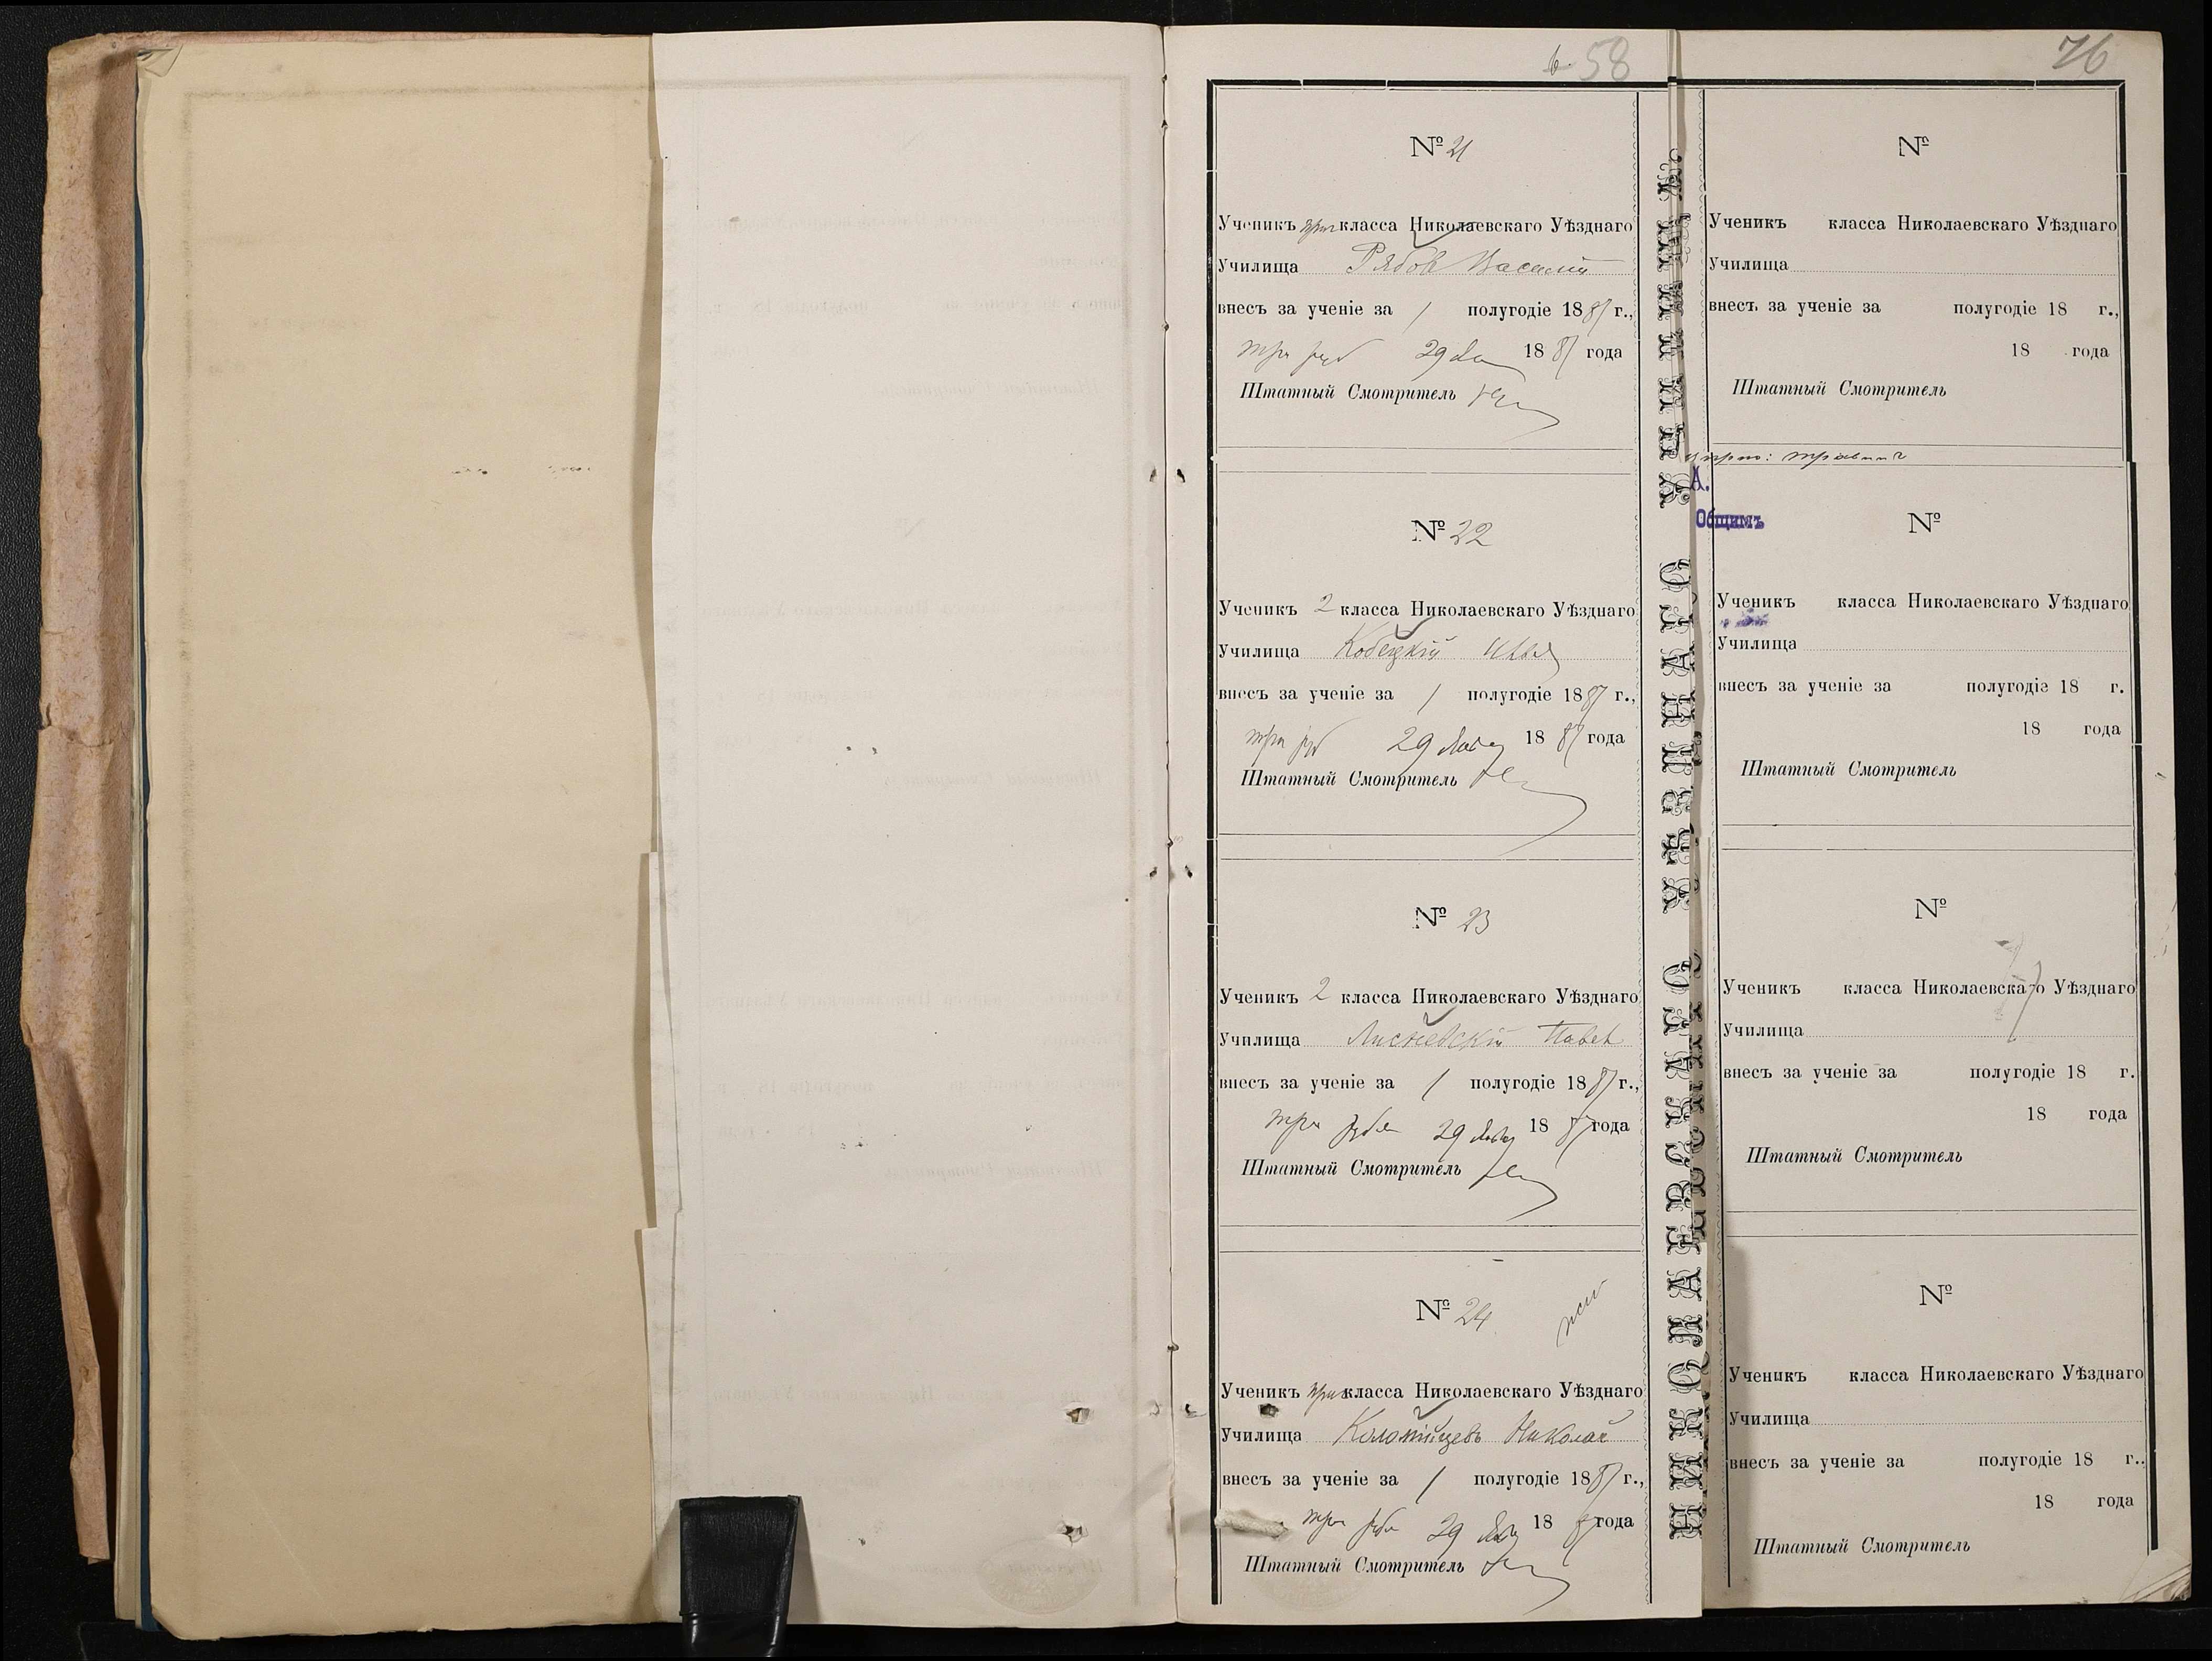 58
№ 21
Ученикъ приг класса Николаевскаго Уѣзднаго
Училища Рябов Василій
внесъ за ученіе за 1 полугодіе 1887 г.,
три руб 29 1887 года
Штатный Смотритель
№ 22
Ученикъ 2 класса Николаевскаго Уѣзднаго
Училища Кобецкій Илья
внесъ за ученіе за 1 полугодіе 1887 г.,
три руб 29 1887 года
Штатный Смотритель
№ 23
Ученикъ 2 класса Николаевскаго Уѣзднаго
Училища Лисневскій Павел
внесъ за ученіе за 1 полугодіе 1887 г.,
три рубля 29 1887 года
Штатный Смотритель
№ 24
Ученикъ приг класса Николаевскаго Уѣзднаго
Училища Коломійцевъ Николай
внесъ за ученіе за 1 полугодіе 1887 г.,
три рубл 29 1887 года
Штатный Смотритель
НИКОЛАЕВСКАГО УѢЗДНАГО УЧИЛИЩА
76
№
Ученикъ класса Николаевскаго Уѣзднаго
Училища
внесъ за ученіе за полугодіе 18 г.,
18 года
Штатный Смотритель
А.
Общимъ
№
Ученикъ класса Николаевскаго Уѣзднаго
Училища
внесъ за ученіе за полугодіе 18 г.
18 года
Штатный Смотритель
№
Ученикъ класса Николаевскаго Уѣзднаго
Училища
внесъ за ученіе за полугодіе 18 г.
18 года
Штатный Смотритель
№
Ученикъ класса Николаевскаго Уѣзднаго
Училища
внесъ за ученіе за полугодіе 18 г..
18 года
Штатный Смотритель